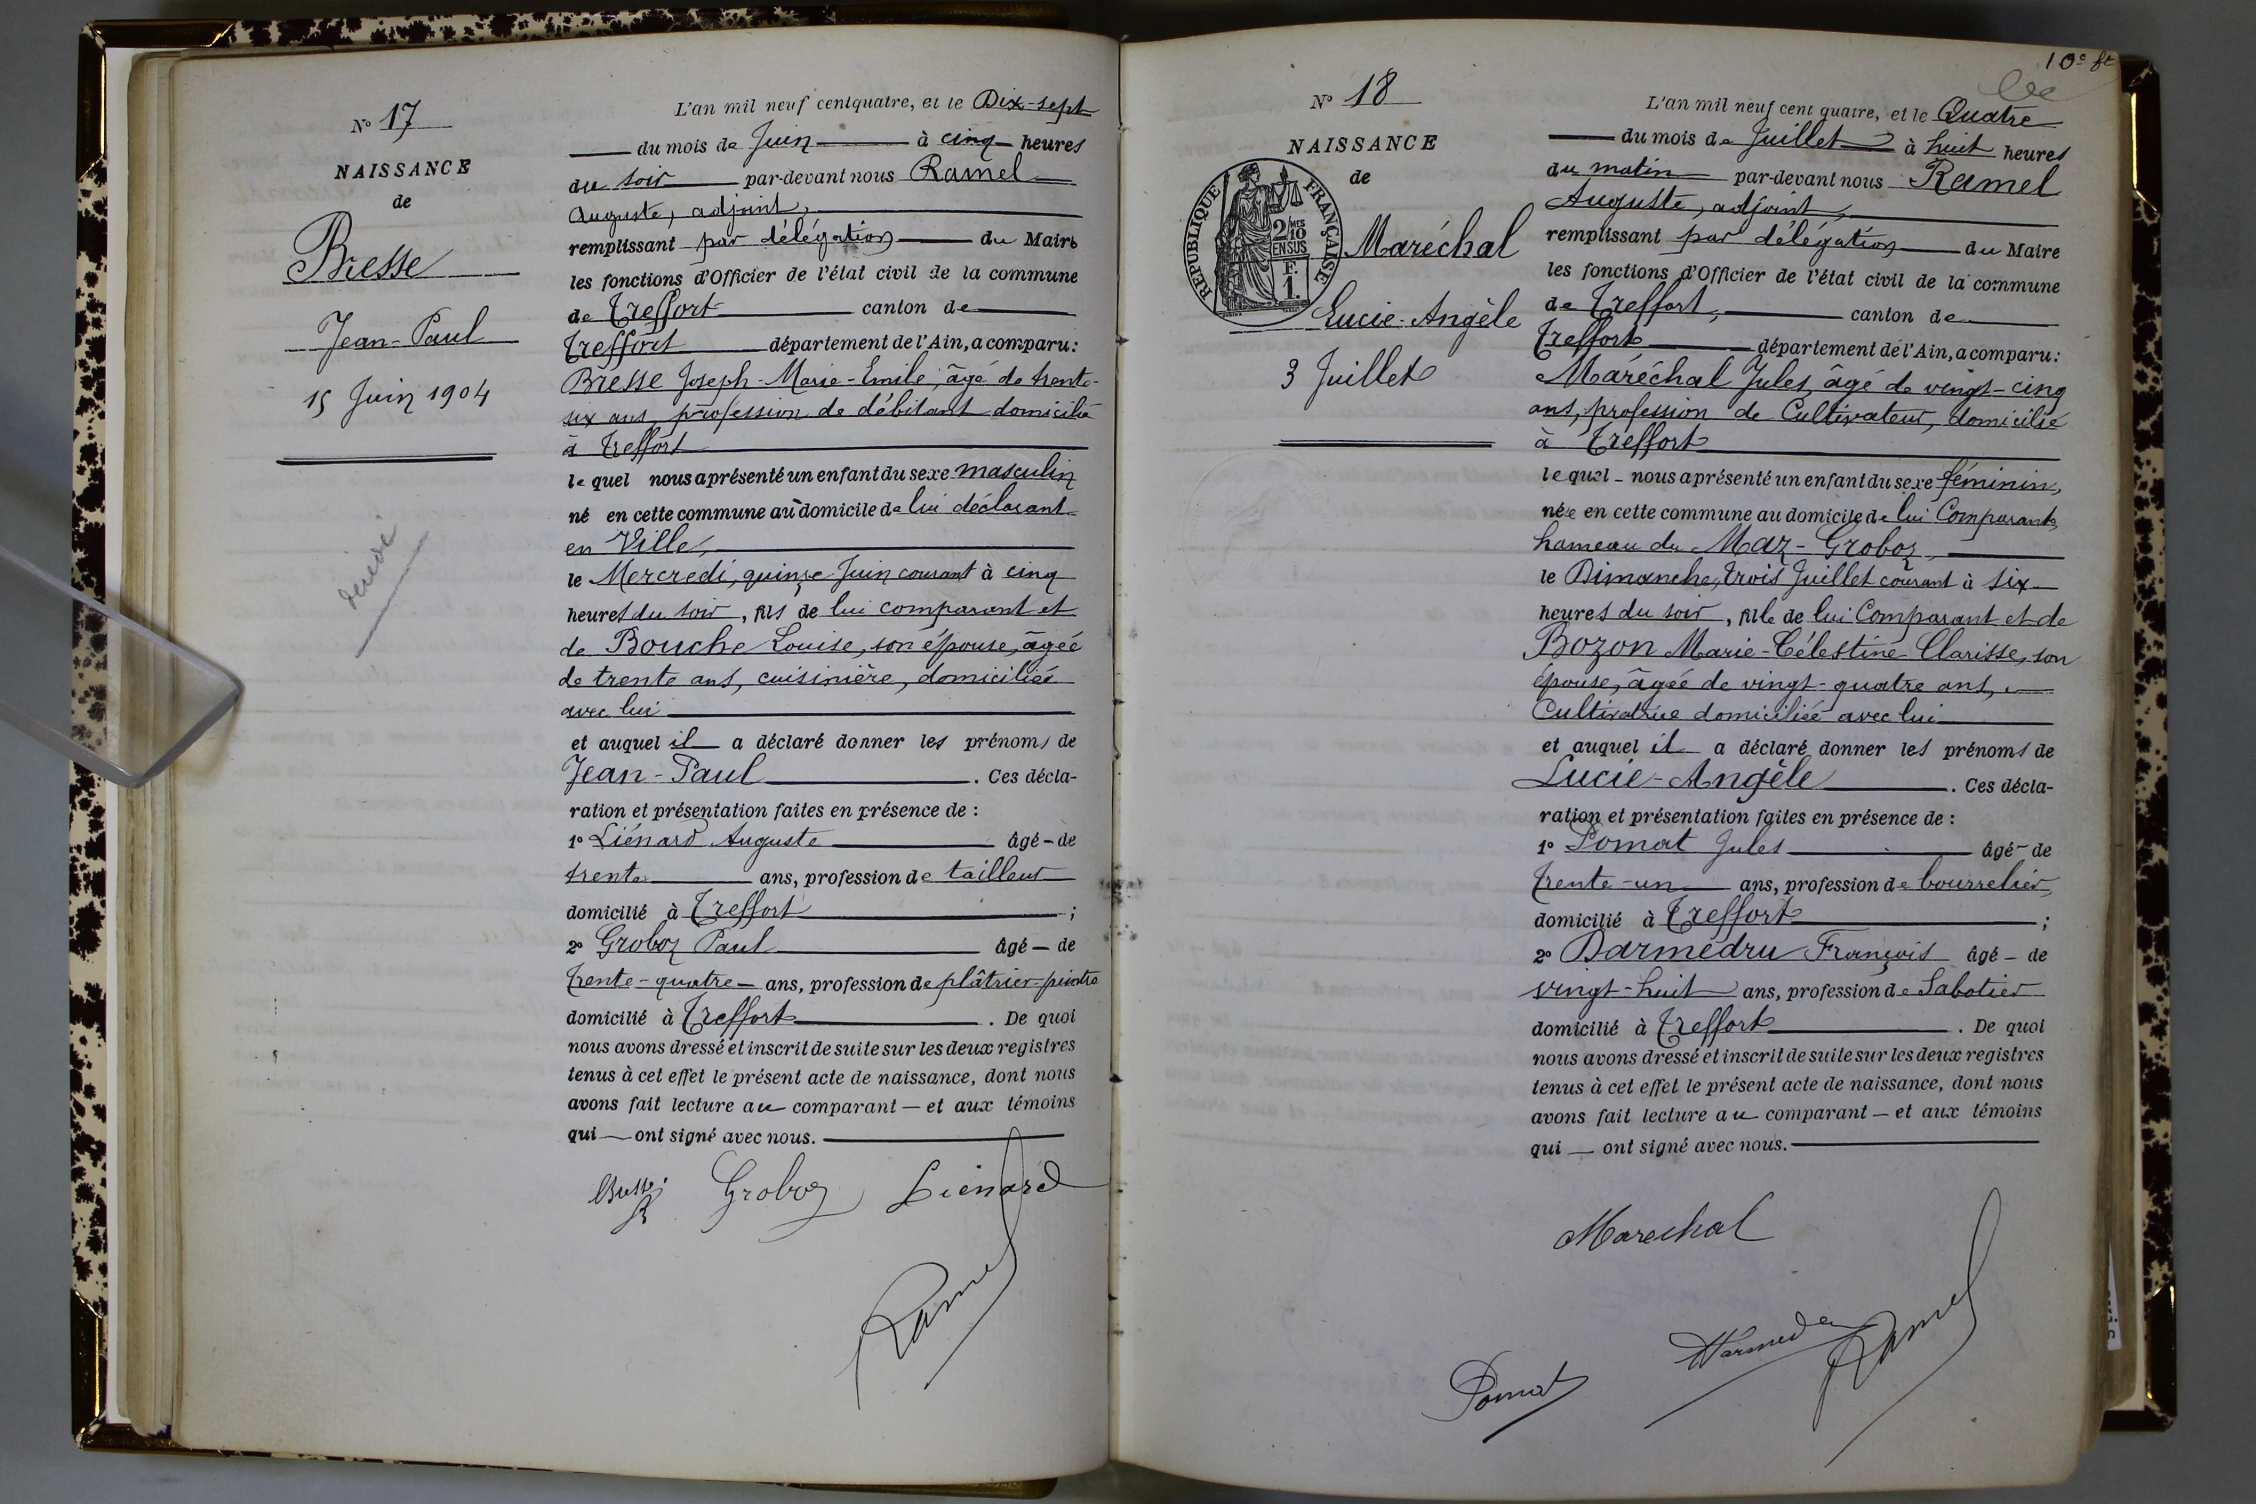 N° 17
NAISSANCE
de
Bresse
Jean-Paul
15 Juin 1904
décédé
L'an mil neuf cent quatre, et le Dix-sept
du mois de Juin à cinq heures
du soir par-devant nous Ramel
Auguste, adjoint,
remplissant par délégation du Maire
les fonctions d'Officier de l'état civil de la commune
de Treffort canton de
Treffort département de l'Ain, a comparu:
Bresse Joseph-Marie-Emile, âgé de trente-
six ans, profession de débitant domicilié
à Treffort
le quel nous a présenté un enfant du sexe masculin
né en cette commune au domicile de lui déclarant
en Ville,
le Mercredi, quinze Juin courant à cinq
heures du soir, fils de lui comparant et
de Bouche Louise, son épouse, âgée
de trente ans, cuisinière, domiciliée
avec lui
et auquel il a déclaré donner les prénoms de
Jean-Paul. Ces décla-
ration et présentation faites en présence de :
1° Liénard Auguste âgé de
trente ans, profession de tailleur
domicilié à Treffort ;
2° Groboz Paul âgé de
trente-quatre ans, profession de plâtrier-peintre
domicilié à Treffort. De quoi
nous avons dressé et inscrit de suite sur les deux registres
tenus à cet effet le présent acte de naissance, dont nous
avons fait lecture au comparant et aux témoins
qui ont signé avec nous.
Bresse Groboz Liénard
Ramel
10e ft
N° 18
NAISSANCE
de
RÉPUBLIQUE FRANÇAISE
2/10 MES
EN SUS
F.
1.
Maréchal
Lucie-Angèle
3 Juillet
L'an mil neuf cent quatre, et le Quatre
du mois de Juillet à huit heures
du matin par-devant nous Ramel
Auguste, adjoint,
remplissant par délégation du Maire
les fonctions d'Officier de l'état civil de la commune
de Treffort, canton de
Treffort département de l'Ain, a comparu:
Maréchal Jules, âgé de vingt-cinq
ans, profession de Cultivateur, domicilié
à Treffort
le quel nous a présenté un enfant du sexe féminin,
née en cette commune au domicile de lui Comparant,
hameau du Maz-Groboz,
le Dimanche, trois Juillet courant à six
heures du soir, fille de lui Comparant et de
Bozon Marie-Célestine-Clarisse, son
épouse, âgée de vingt-quatre ans,
Cultivatrice domiciliée avec lui
et auquel il a déclaré donner les prénoms de
Lucie-Angèle. Ces décla-
ration et présentation faites en présence de :
1° Pomat Jules âgé de
trente-un ans, profession de bourrelier,
domicilié à Treffort ;
2° Darmédru François âgé de
vingt-huit ans, profession de Sabotier
domicilié à Treffort. De quoi
nous avons dressé et inscrit de suite sur les deux registres
tenus à cet effet le présent acte de naissance, dont nous
avons fait lecture au comparant et aux témoins
qui ont signé avec nous.
Marechal
Pomat Ramel